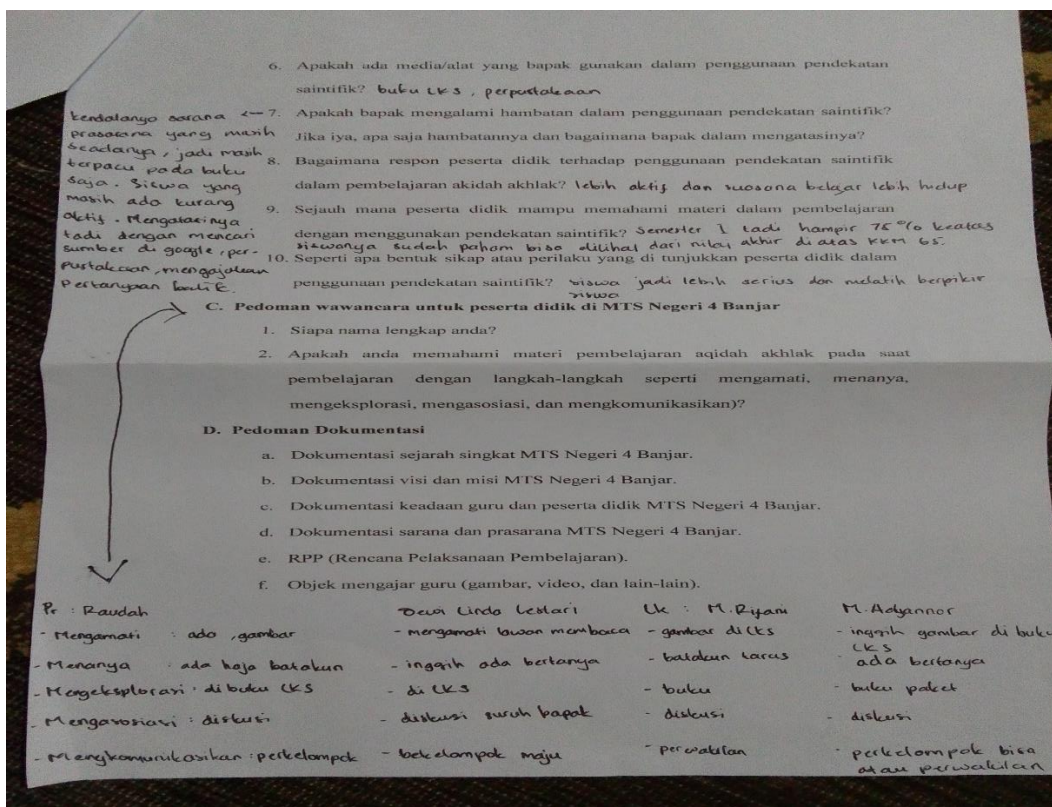 6. Apakah ada media/alat yang bapak gunakan dalam penggunaan pendekatan
saintifik? buku LKS, perpustakaan
7. Apakah bapak mengalami hambatan dalam penggunaan pendekatan saintifik?
Jika iya, apa saja hambatannya dan bagaimana bapak dalam mengatasinya?
kendalanya sarana
prasarana yang masih
seadanya, jadi masih
terpacu pada buku
saja. Siswa yang
masih ada kurang
aktif. Mengatasinya
tadi dengan mencari
sumber di google, per-
pustakaan, mengajukan
Pertanyaan balik.
8. Bagaimana respon peserta didik terhadap penggunaan pendekatan saintifik
dalam pembelajaran akidah akhlak? lebih aktif dan suasana belajar lebih hidup
9. Sejauh mana peserta didik mampu memahami materi dalam pembelajaran
dengan menggunakan pendekatan saintifik? Semester 1 tadi hampir 75% keatas
siswanya sudah paham bisa dilihat dari nilai akhir di atas KKM 65.
10. Seperti apa bentuk sikap atau perilaku yang di tunjukkan peserta didik dalam
penggunaan pendekatan saintifik? siswa jadi lebih serius dan melatih berpikir
siswa
C. Pedoman wawancara untuk peserta didik di MTS Negeri 4 Banjar
1. Siapa nama lengkap anda?
2. Apakah anda memahami materi pembelajaran aqidah akhlak pada saat
pembelajaran dengan langkah-langkah seperti mengamati, menanya,
mengeksplorasi, mengasosiasi, dan mengkomunikasikan)?
D. Pedoman Dokumentasi
a. Dokumentasi sejarah singkat MTS Negeri 4 Banjar.
b. Dokumentasi visi dan misi MTS Negeri 4 Banjar.
c. Dokumentasi keadaan guru dan peserta didik MTS Negeri 4 Banjar.
d. Dokumentasi sarana dan prasarana MTS Negeri 4 Banjar.
e. RPP (Rencana Pelaksanaan Pembelajaran).
f. Objek mengajar guru (gambar, video, dan lain-lain).
Pr : Raudah
- Mengamati : ada, gambar
- Menanya : ada haja batakun
- Mengeksplorasi : di buku LKS
- Mengasosiasi : diskusi
- Mengkomunikasikan : perkelompok
Dewi Linda Lestari
- mengamati lawan membaca
- inggih ada bertanya
- di LKS
- diskusi suruh bapak
- bekelompok maju
Lk : M. Riyani
- gambar di LKS
- batakun tarus
- buku
- diskusi
- perwakilan
M. Adyannor
- inggih gambar di buku
LKS
- ada bertanya
- buku paket
- diskusi
- perkelompok bisa
atau perwakilan